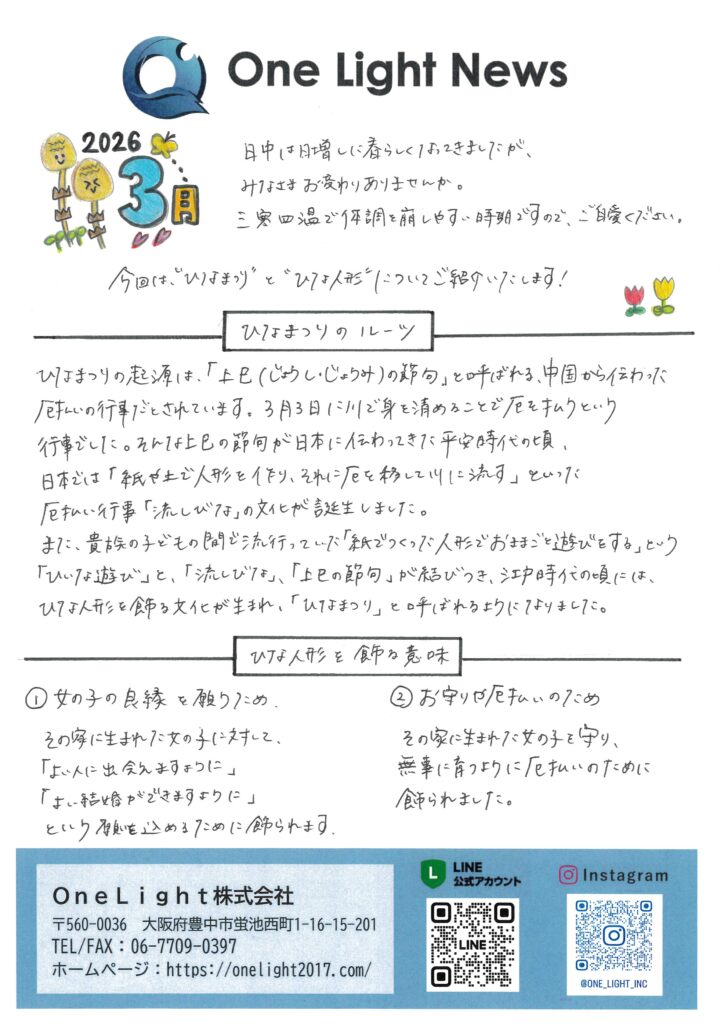 One Light News
2026
3月
日中は日増しに春らしくなってきましたが、
みなさまお変わりありませんか。
三寒四温で体調を崩しやすい時期ですので、ご自愛ください。
今回は、"ひなまつり"と"ひな人形"についてご紹介いたします!
ひなまつりのルーツ
ひなまつりの起源は、「上巳(じょうし・じょうみ)の節句」と呼ばれる、中国から伝わった
厄払いの行事だとされています。3月3日に川で身を清めることで厄を払うという
行事でした。そんな上巳の節句が日本に伝わってきた平安時代の頃、
日本では「紙や土で人形を作り、それに厄を移して川に流す」といった
厄払い行事「流しびな」の文化が誕生しました。
また、貴族の子どもの間で流行っていた「紙でつくった人形でおままごと遊びをする」という
「ひいな遊び」と、「流しびな」、「上巳の節句」が結びつき、江戸時代の頃には、
ひな人形を飾る文化が生まれ、「ひなまつり」と呼ばれるようになりました。
ひな人形を飾る意味
① 女の子の良縁を願うため.
その家に生まれた女の子に対して、
「よい人に出会えますように」
「よい結婚ができますように」
という願いを込めるために飾られます.
② お守りや厄払いのため
その家に生まれた女の子を守り、
無事に育つように厄払いのために
飾られました。
OneLight株式会社
〒560-0036 大阪府豊中市蛍池西町1-16-15-201
TEL/FAX:06-7709-0397
ホームページ:https://onelight2017.com/
LINE
公式アカウント
LINE
Instagram
@ONE_LIGHT_INC